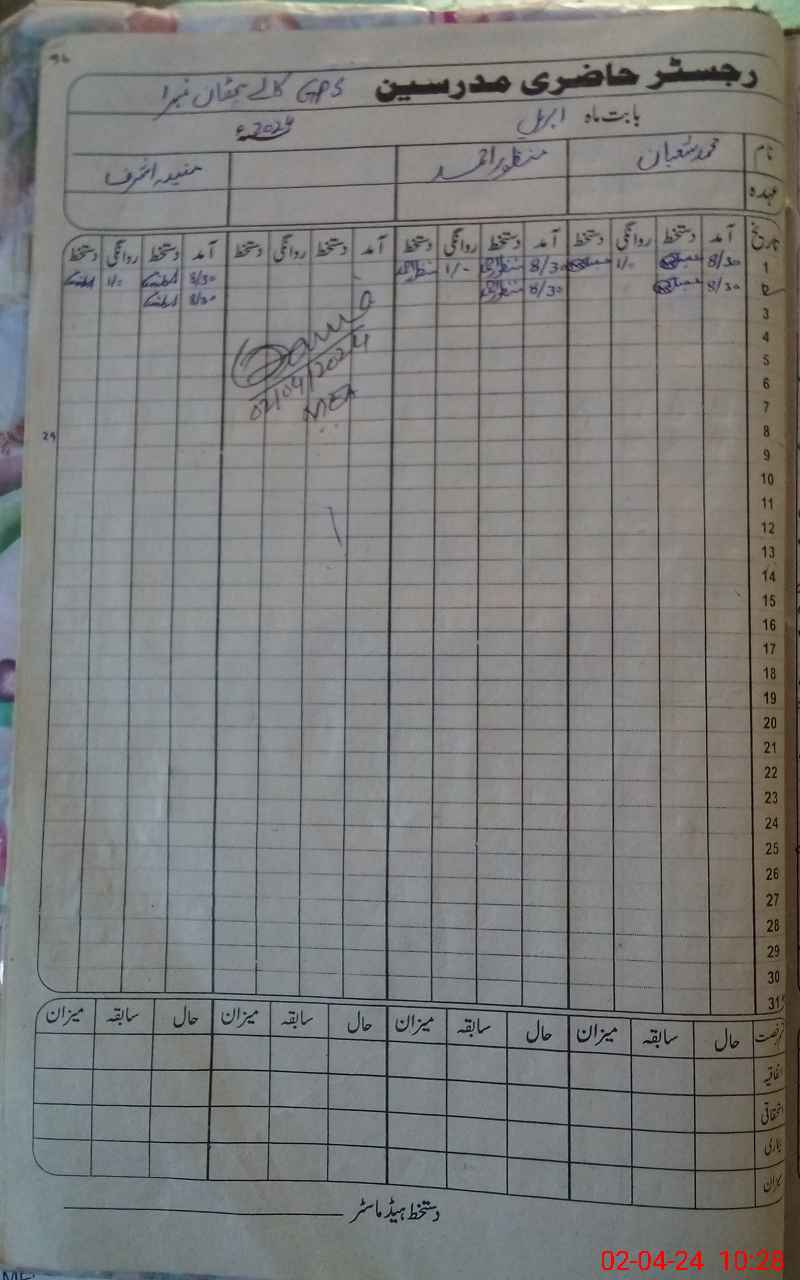 رجسٹر حاضری مدرسین GPS کالے نمبر 1
بابت ماہ اپریل 2024ء
نام محمد شعبان منظور احمد
عہدہ
تاریخ آمد دستخط روانگی دستخط آمد دستخط روانگی دستخط آمد دستخط روانگی دستخط آمد دستخط روانگی دستخط
1 8/30 1/- 8/30 منظور 1/- منظور 8/30 1/-
2 8/30 8/30 منظور 8/30
3
4
5
6
7
8
9
10
11
12
13
14
15
16
17
18
19
20
21
22
23
24
25
26
27
28
29
30
31
02/04/2024
MEA
29
رخصت حال سابقہ میزان حال سابقہ میزان حال سابقہ میزان حال سابقہ میزان
اتفاقیہ
استحقاقی
بیماری
میزان
دستخط ہیڈ ماسٹر
02-04-24 10:28